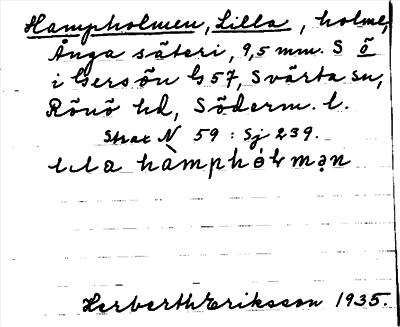 Hampholmen, Lilla, holme,
Ånga säteri, 9,5 mm. S ö
i Gersön G 57, Svärta sn,
Rönö hd, Söderm. l.
Strax N 59 : Sj 239.
hàmphòlmən
Herberth Eriksson 1935.